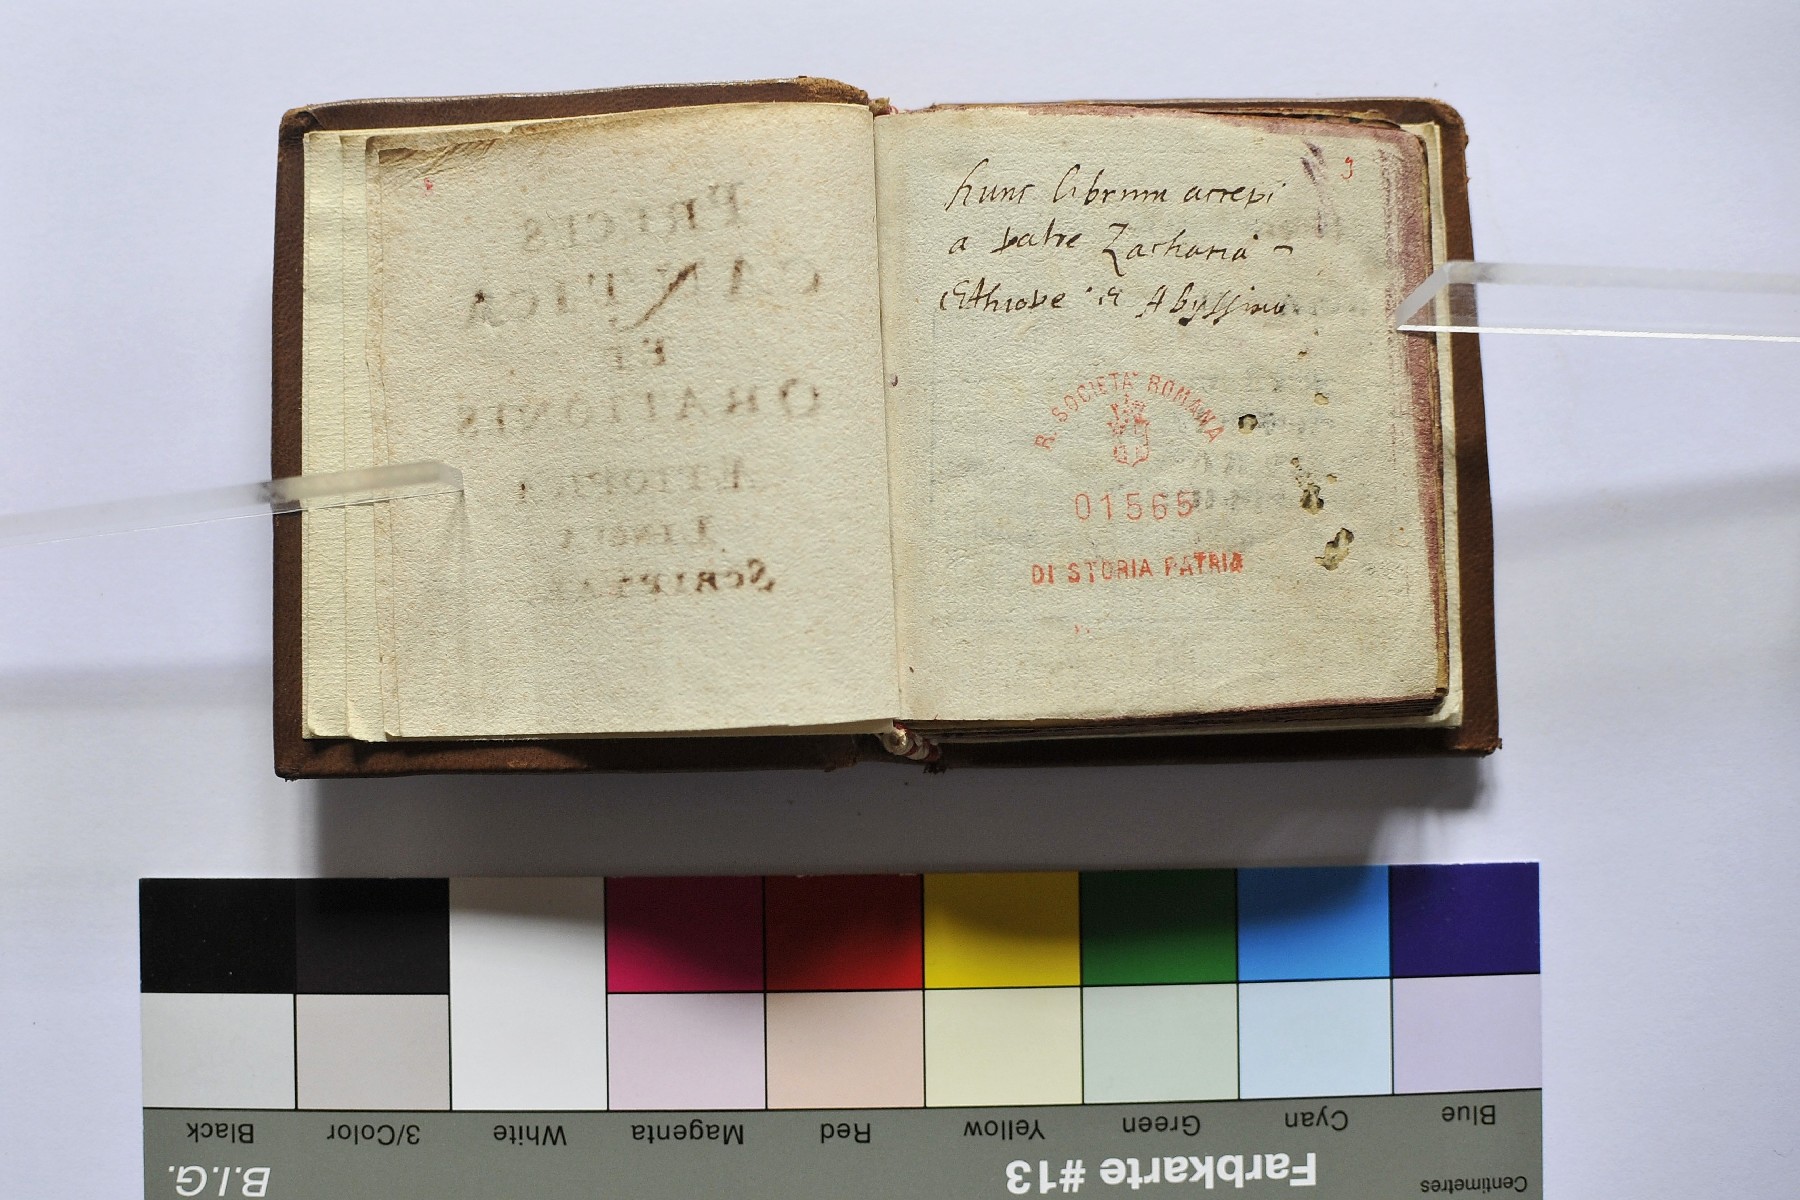 PRECES
CANTICA
ET
ORATIONES
ÆTIOPICA
LINGUA
SCRIPTAE
3
hunc librum accepi
a patre Zacharia
Æthiope et Abyssino
R. SOCIETA' ROMANA
01565
DI STORIA PATRIA
Black
3/Color
White
Magenta
Red
Yellow
Green
Cyan
Blue
B.I.G.
Farbkarte #13
Centimetres